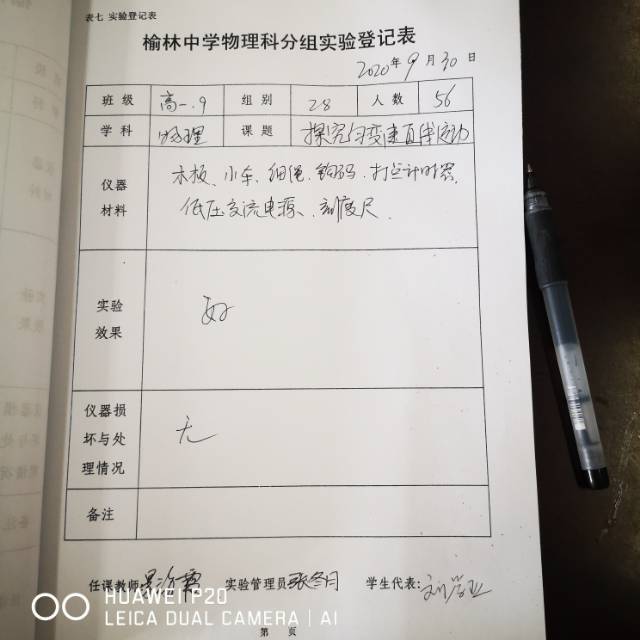 表七 实验登记表
榆林中学物理科分组实验登记表
2020年9月30日
班级 高一.9 组别 28 人数 56
学科 物理 课题 探究匀变速直线运动
仪器材料 木板、小车、细绳、钩码、打点计时器、
低压交流电源、刻度尺.
实验效果 好
仪器损坏与处理情况 无
备注
任课教师 实验管理员 张冬月 学生代表:
HUAWEI P20
LEICA DUAL CAMERA | AI
第 页